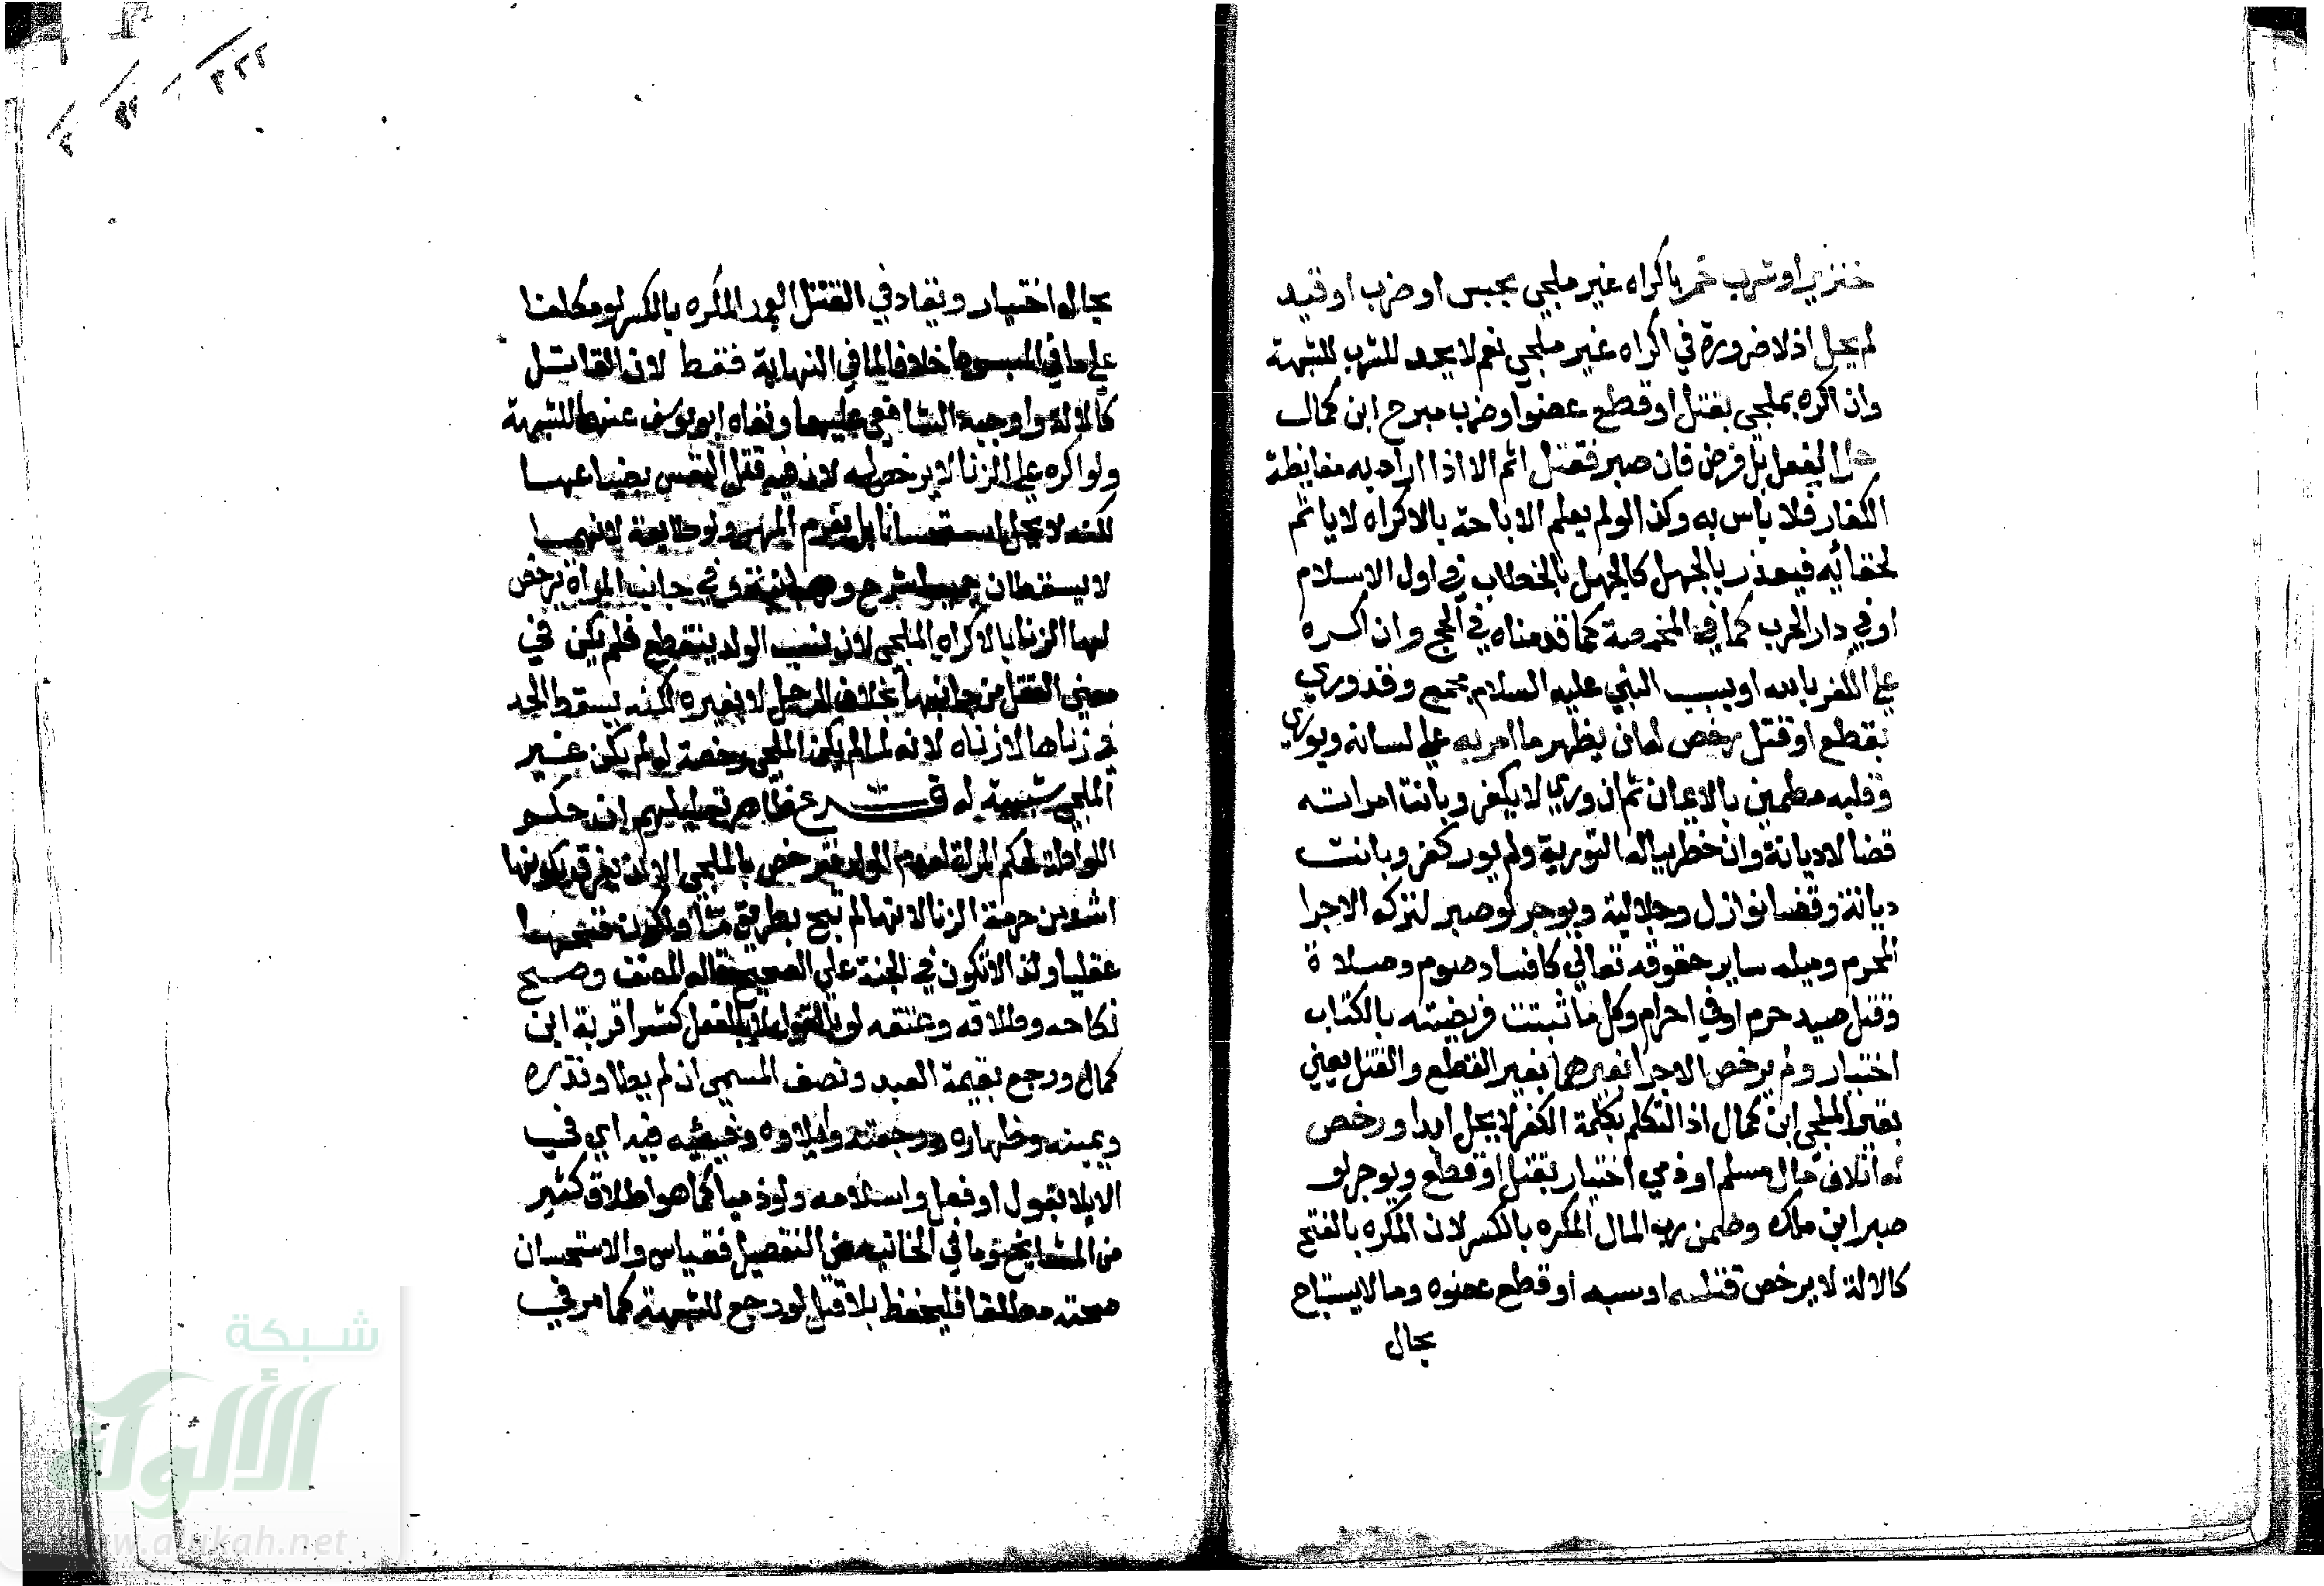 خنزير او شرب خمر باكراه غير ملجي بحبس او ضرب او قيد
لم يحل اذ لا ضرورة في اكراه غير ملجي نعم لا يحد للشرب للشبهة
وان اكره بملجي بقتل او قطع عضوا وضرب مبرح ابن كمال
حل الفعل بل فرض فان صبر فقتل اثم الا اذا اراد به مغايظة
الكفار فلا باس به وكذا لو لم يعلم الاباحة بالاكراه لا ياثم
لخفائه فيعذر بالجهل كالجهل بالخطاب في اول الاسلام
او في دار الحرب كما في المخمصة كما قدمناه في الحج وان اكره
علي الكفر بالله او بسب النبي عليه السلام مجمع وقدوري
بقطع او قتل رخص له ان يظهر ما امر به علي لسانه ويوري
وقلبه مطمين بالايمان ثم ان وري لا يكفر وبانت امراته
قضا لا ديانة وان خطر بباله التورية ولم يور كفر وبانت
ديانة وقضا نوازل وجلالية ويوجر لو صبر لتركه الاجرا
المحرم ومثله ساير حقوقه تعالي كافساد صوم وصلاة
وقتل صيد حرم او في احرام وكل ما ثبتت فرضيته بالكتاب
اختيار ولم يرخص الاجرا بغيرهما بغير القطع والقتل يعني
بغير الملجي ابن كمال اذ التكلم بكلمة الكفر لا يحل ابدا ورخص
له اتلاف مال مسلم او ذمي اختيار بقتل او قطع ويوجر لو
صبر ابن ملك وضمن رب المال المكره بالكسر لان المكره بالفتح
كالالة لا يرخص قتله او سبه او قطع عضوه وما لا يستباح
بحال
بحال اختيار ويقاد في القتل العمد المكره بالكسر لو مكلفا
علي ما في المبسوط خلافا لما في النهاية فقط لان القاتل
كالالة واوجبه الشافعي عليهما ونفاه ابو يوسف عنهما للشبهة
ولو اكره علي الزنا لا يرخص له لان فيه قتل النفس بضياعها
لكنه لا يحد استحسانا بل يغرم المهر ولو طايعة لانهما
لا يسقطان جميعا شرح وهبانية وفي جانب المراة يرخص
لها الزنا بالاكراه الملجي لان نسب الولد ينقطع فلم يكن في
معني القتل من جانبها بخلاف الرجل لا بغيره لكنه يسقط الحد
في زناها لا زناه لانه لما لم يكن الملجي رخصة له لم يكن غير
الملجي شبهة له فرع ظاهر تعليلهم ان حكم
اللواطة كحكم المراة لعدم الولد فترخص بالملجي الا ان يفرق بكونها
اشد من حرمة الزنا لانها لم تبح بطريق ما ولكون قبحها
عقليا ولذا لا تكون في الجنة علي الصحيح قاله المصنف وصح
نكاحه وطلاقه وعتقه لو بالقول لا بالفعل كشرا قريبه ابن
كمال ورجع بقيمة العبد ونصف المسمي ان لم يطا ونذره
ويمينه وظهاره ورجعته وايلاوه وفيئه فيه اي في
الايلا بقول او فعل واسلامه ولو ذميا كما هو اطلاق كثير
من المشايخ وما في الخانية من التفصيل فقياس والاستحسان
صحته مطلقا فليحفظ بلا قتل لو رجع للشبهة كما مر في
شبكة
الألوكة
www.alukah.net